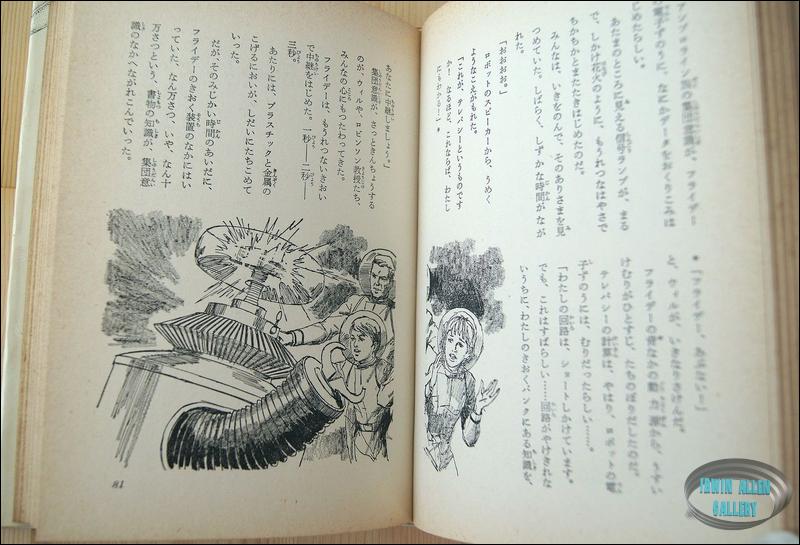 の集団意識が、フライデー
の電子ずのうに、なにかデータをおくりこみは
じめたらしい。
あたまのところに見える信号ランプが、まる
で、しかけ花火のように、もうれつなはやさで
ちかちかとまたたきはじめたのだ。
みんなは、いきをのんで、そのありさまを見
つめていた。しばらく、しずかな時間がなが
れた。
「おおおお。」
ロボットのスピーカーから、うめく
ようなこえがもれた。
「これが、テレパシーというものです
か！ なるほど、これならば、わたし
にもわかる！」
「フライデー、あぶない！」
と、ウィルが、いきなりさけんだ。
フライデーの背なかの動力源から、うすい
けむりがひとすじ、たちのぼりだしたのだ。
テレパシーの計算は、やはり、ロボットの電
子ずのうには、むりだったらしい……。
「わたしの回路は、ショートしかけています。
でも、これはすばらしい……回路がやけきれな
いうちに、わたしのきおくバンクにある知識を、
あなたに中継しましょう。」
集団意識が、さっときんちょうする
のが、ウィルや、ロビンソン教授たち、
みんなの心にもつたわってきた。
フライデーは、もうれつないきおい
で中継をはじめた。一秒――二秒――
三秒。
あたりには、プラスチックと金属の
こげるにおいが、しだいにたちこめて
いった。
だが、そのみじかい時間のあいだに、
フライデーのきおく装置のなかにはい
っていた、なん万さつ、いや、なん十
万さつという、書物の知識が、集団意
識のなかへながれこんでいった。
81
IRWIN ALLEN
GALLERY